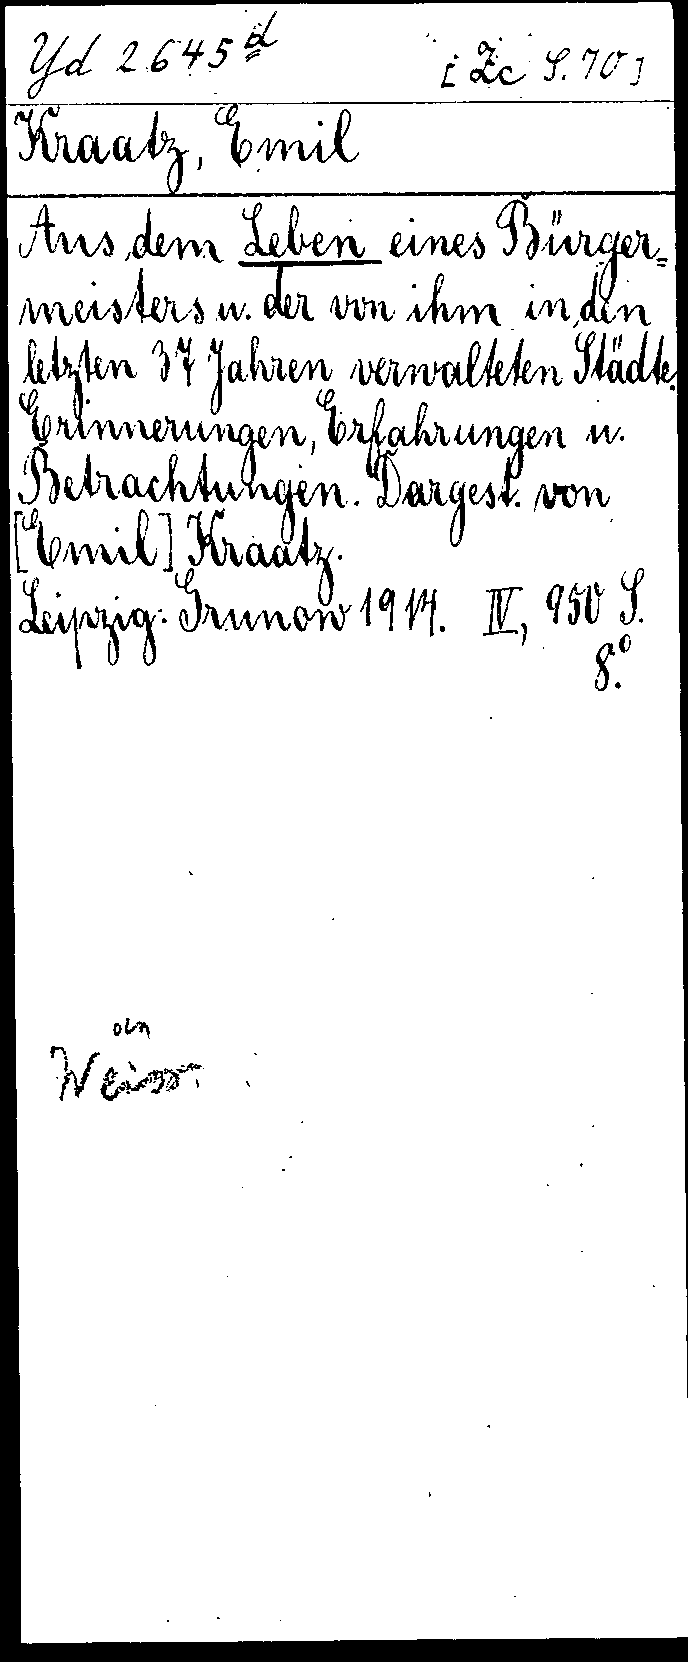 Yd 2645 d [Zc S. 70]
Kraatz, Emil
Aus dem Leben eines Bürger=
meisters u. der von ihm in den
letzten 37 Jahren verwalteten Städte.
Erinnerungen, Erfahrungen u.
Betrachtungen. Dargest. von
[Emil] Kraatz.
Leipzig: Grunow 1914. IV, 950 S.
8.°
Weiss.